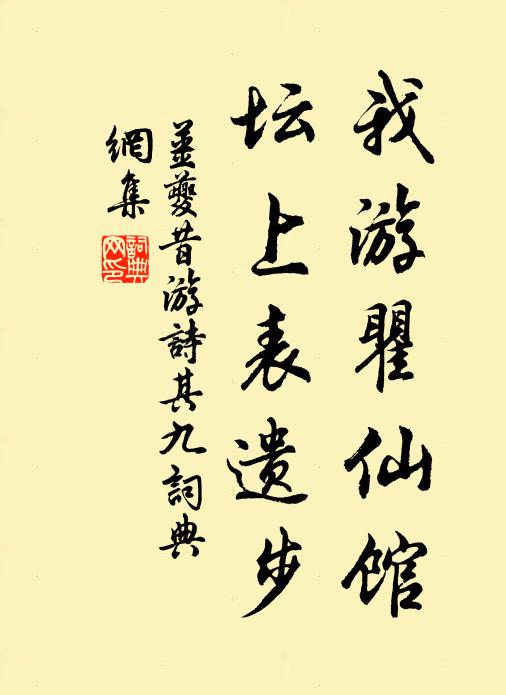 我游瞿仙馆
坛上表遗步
姜夔昔游詩其九詞典
網集
詞典网印